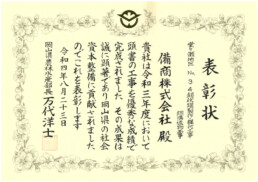 表彰状
備商株式会社 殿
貴社は令和三年度において
頭書の工事を優秀な成績で
完成されました その成果は
誠に顕著であり岡山県の社会
資本整備に貢献されました
のでこれを表彰します
令和四年八月二十三日
岡山県農林水産部長 万代洋士